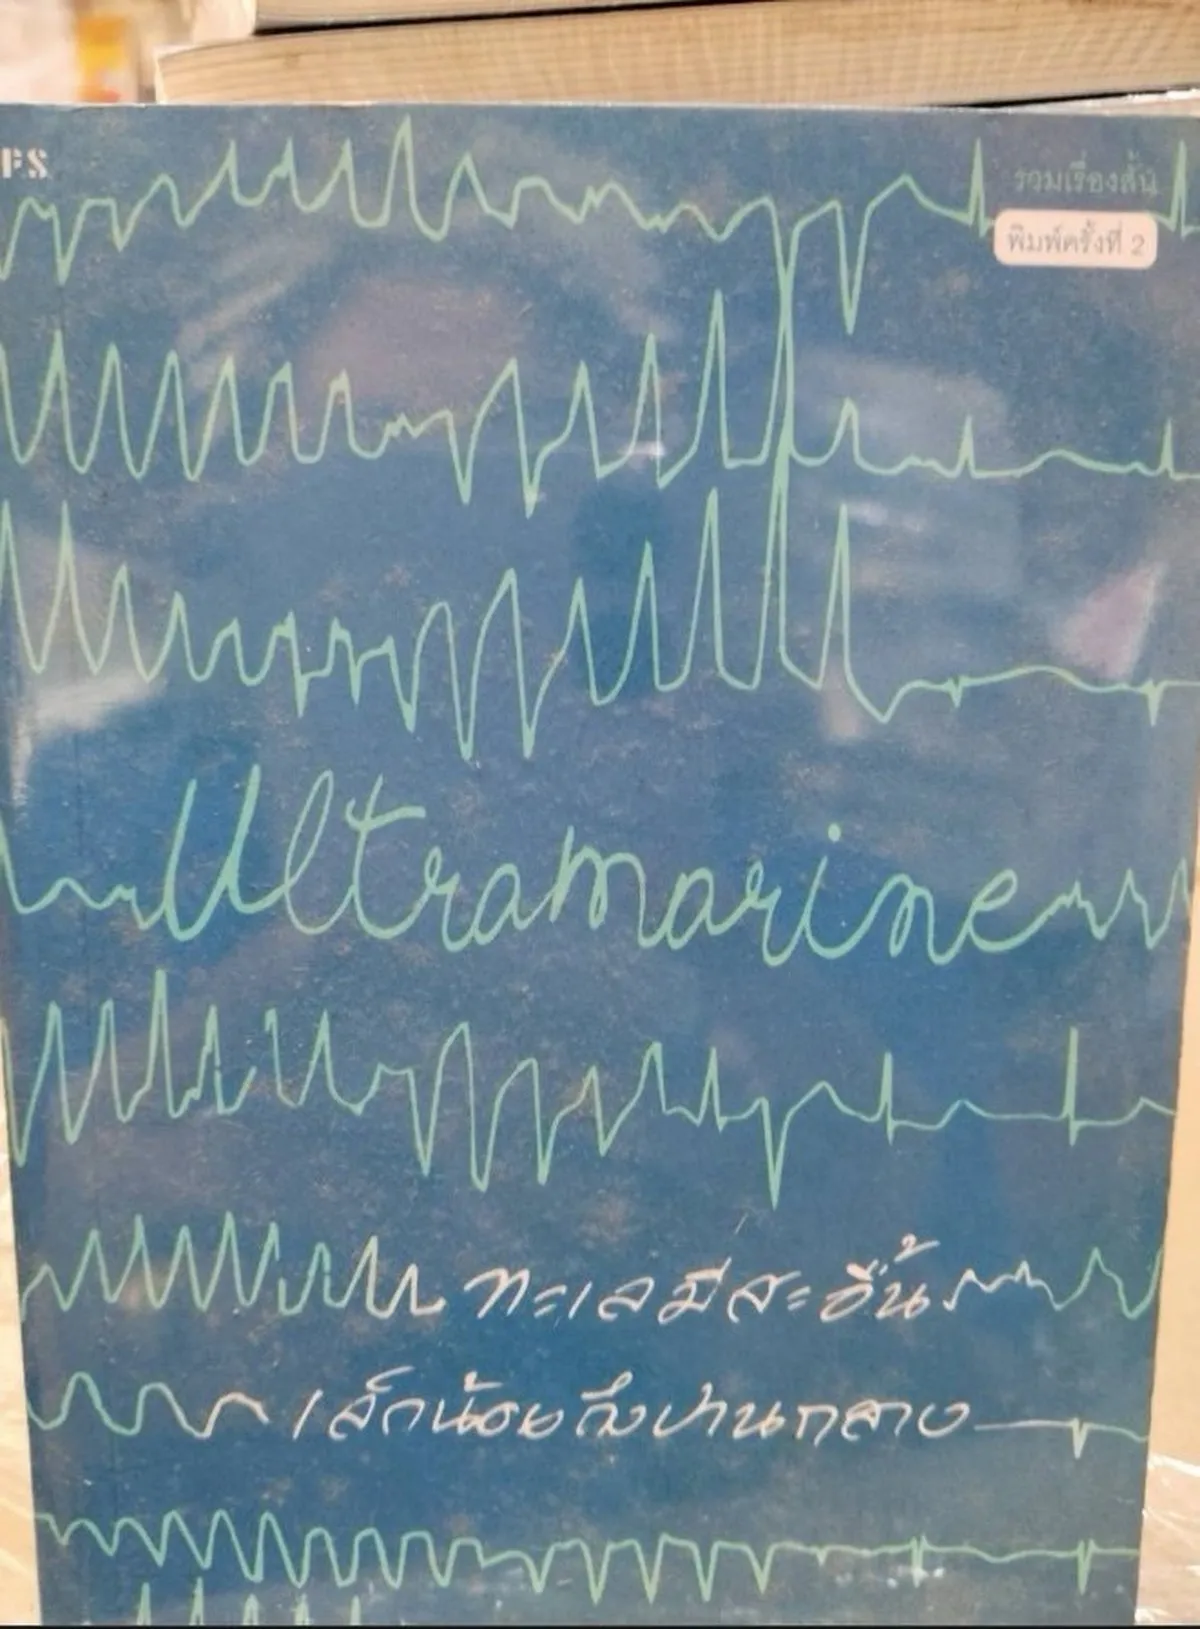 PS
รวมเรื่องสั้น
พิมพ์ครั้งที่ 2
Ultramarine
ทะเลมีสะอื้น
เล็กน้อยถึงปานกลาง